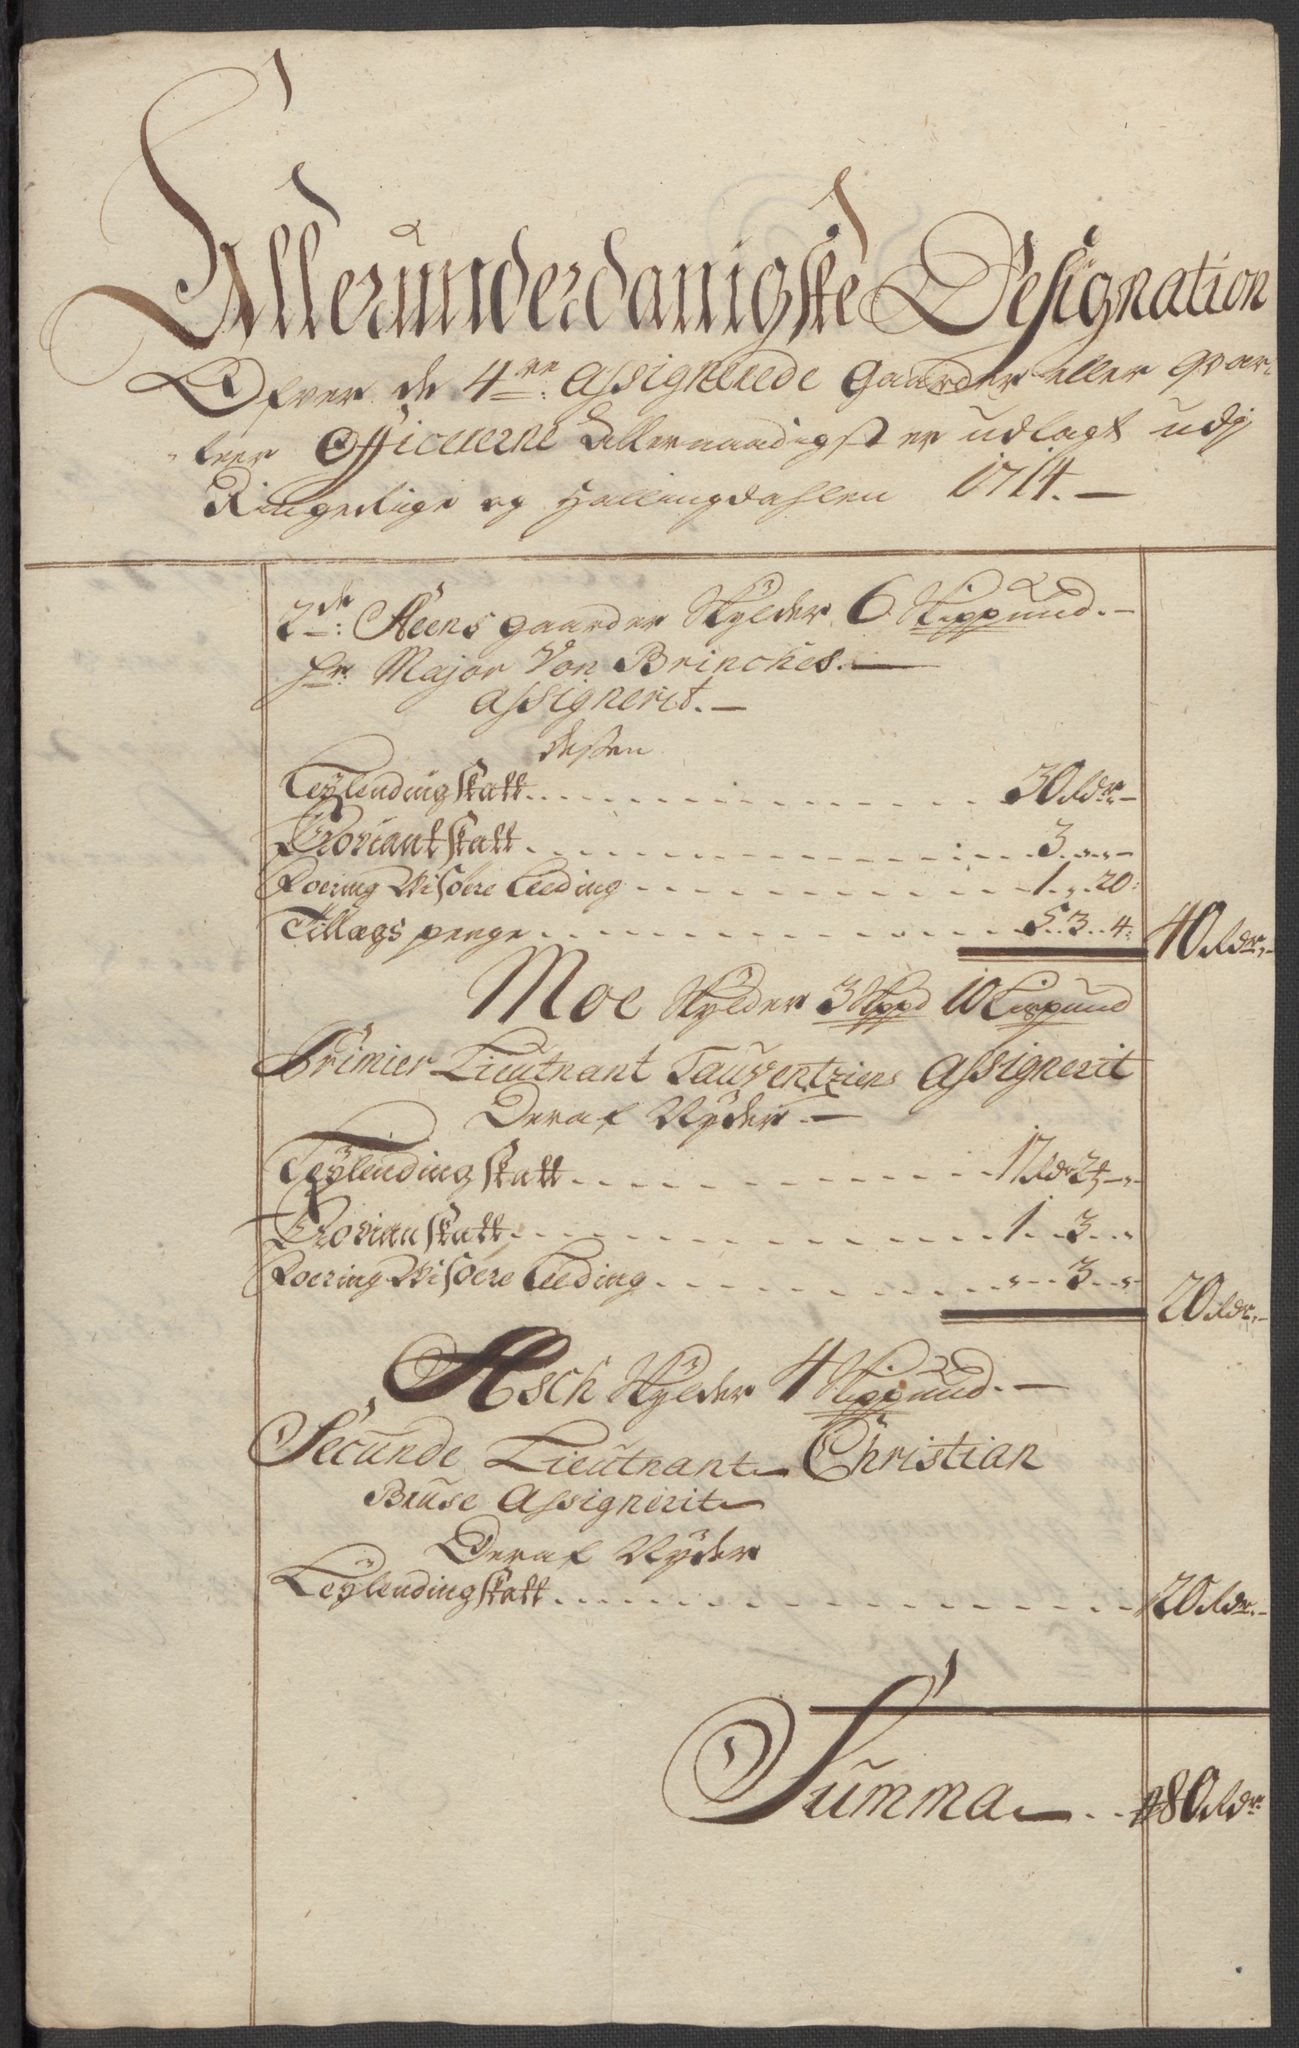 Allerunderdanigste Designation
Ofver de 4re: Assignerede gaarder eller qvar-
teer Officererne Allernaadigst er udlagt udj
Ringerige og Hallingdahlen 1714.—
2de: Steens gaarder skylder 6 Skippund.—
Hr: Major Von Brinches.—
Assignerit.—
deßen
Leylending skatt 30 Rdr:—
Proviant skatt 3 „ „—
Foering Wisöere Leeding 1 „ 20:
Tillægs penge 5. 3. 4: 40 Rdr:—
Moe skylder 3 Skppd 10 Lispund
Primier Lieutnant Tauventziens Assignerit
Deraf Nyder.—
Leylending skatt 17 Rdr 2 „—
Provian skatt 1. 3. „
Foering Wisöere Leeding „ 3. „ 20 Rdr:—
Asch skylder 4 Skippund.—
Secunde Lieutnant Christian
Bruse Assignerit
Deraf Nyder
Leylending skatt 20 Rdr:—
Summa 80 Rdr: